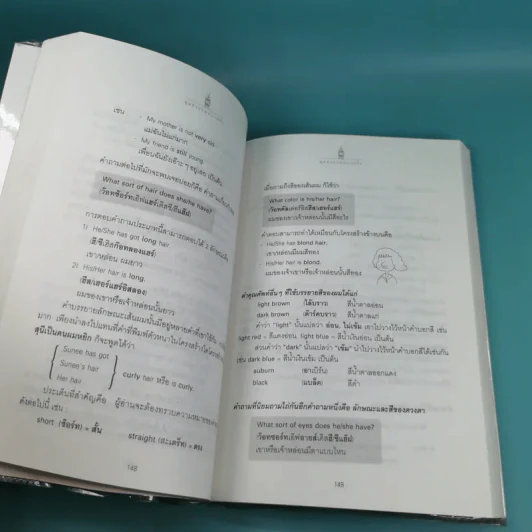 เช่น - My mother is not very old.
แม่ฉันไม่แก่มาก
- My friend is still young.
เพื่อนฉันยังเอ๊าะ ๆ อยู่เลย เป็นต้น
What sort of hair does she/he have?
การตอบคำถามประเภทนี้สามารถตอบได้ 2
1) He/She has got long hair.
เขา/หล่อน ผมยาว
2) His/Her hair is long.
ผมของเขาหรือเจ้าหล่อนนั้นยาว
Sunee has got
Sunee's hair
Her hair
curly hair หรือ is curly.
ประเด็นที่สำคัญคือ ผู้อ่านจะต้องทราบความหมายของ
ดังต่อไปนี้ เช่น
short (ช้อร์ท) = สั้น straight (สะเตร็ท) = ตรง
148
เมื่อถามถึงสีของเส้นผม ก็ใช้ว่า
What color is his/her hair?
ผมของเขา/เจ้าหล่อนนั้นมีสีอะไร
คำตอบสามารถทำได้เหมือนกับโครงสร้างข้างบนคือ
- He/She has blond hair.
เขา/หล่อนมีผมสีทอง
His/Her hair is blond.
ผมของเจ้าเขาหรือเจ้าหล่อนนั้นสีทอง
คำคุณศัพท์อื่นๆ ที่ใช้บรรยายสีของผมได้แก่
light brown (ไล้บราว) สีน้ำตาลอ่อน
dark brown (ด๊าร์คบราว) สีน้ำตาลแก่
คำว่า "light" นั้นแปลว่า อ่อน, ไม่เข้ม เอาไปวางไว้หน้าคำบอกสี เช่น
light red = สีแดงอ่อน, light blue = สีน้ำเงินอ่อน เป็นต้น
ส่วนคำว่า "dark" นั้นแปลว่า "เข้ม" นำไปวางไว้หน้าคำบอกสีได้เช่นกัน
เช่น dark blue = สีน้ำเงินเข้ม เป็นต้น
auburn (อาเบิร์น) สีน้ำตาลออกแดง
black (แบล็ค) สีดำ
คำถามที่นิยมถามไถ่กันอีกคำถามหนึ่งคือ ลักษณะและสีของดวงตา
What sort of eyes does he/she have?
เขาหรือเจ้าหล่อนมีตาแบบไหน
149